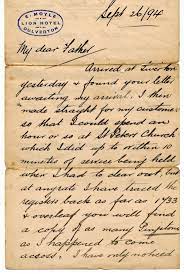 E. MOYLE
LION HOTEL
DULVERTON
Sept 26/94
My dear Father
Arrived at Tiverton
yesterday & found your letter
awaiting my arrival. I then
made straight for my customer
so that I could spend an
hour or so at St Peter Church
which I did up to within 10
minutes of service being held
when I had to clear out, but
at any rate I have traced the
register back as far as 1733
& overleaf you will find
a copy of as many
as I happened to come
across, I have only noticed